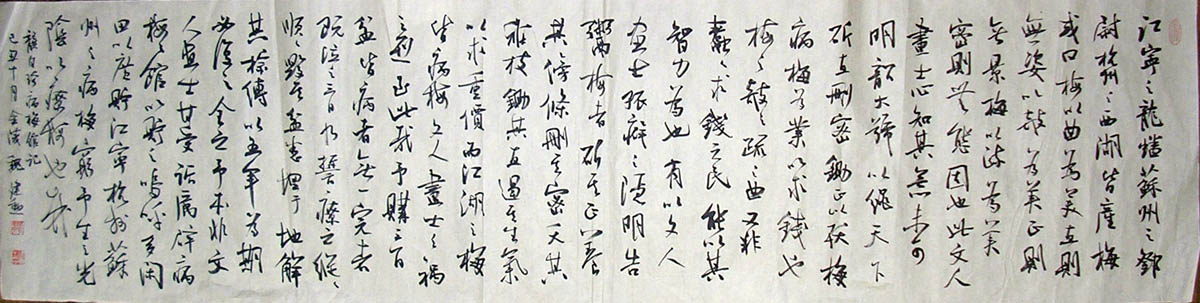 江寧之龍蟠蘇州之鄧
尉杭州之西湖皆産梅
或曰梅以曲為美直則
無姿以敧為美正則
無景梅以疏為美
密則無態固也此文人
畫士心知其意未可
明詔大號以繩天下
斫直刪密鋤正以殀梅
病梅為業以求錢也
梅之敧之疏之曲又非
蠢蠢求錢之民能以其
智力為也有以文人
畫士孤癖之隱明告
鬻梅者斫其正以養
其傍條刪其密夭其
稚枝鋤其直遏其生氣
以求重價而江湖之梅
皆病梅文人畫士之禍
之烈至此哉予購三百
盆皆病者無一完者
既泣之三日乃誓療之縱之
順之毀其盆悉埋于地解
其棕縛以五年為期
必復之全之予本非文
人畫士甘受詬厲辟病
梅之館以貯之嗚呼多閑
田以廣貯江寧杭州蘇
州之病梅窮予生之光
陰以療梅也哉
龔自珍病梅館記
己丑十月金陵魏